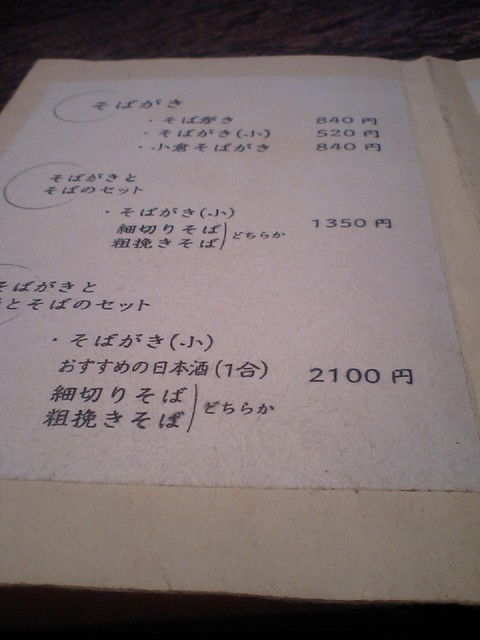 そばがき
・そばがき 840円
・そばがき(小) 520円
・小倉そばがき 840円
そばがきと
そばのセット
・そばがき(小)
細切りそば
粗挽きそば
どちらか
1350円
そばがきと
とそばのセット
・そばがき(小)
おすすめの日本酒(1合)
細切りそば
粗挽きそば
どちらか
2100円